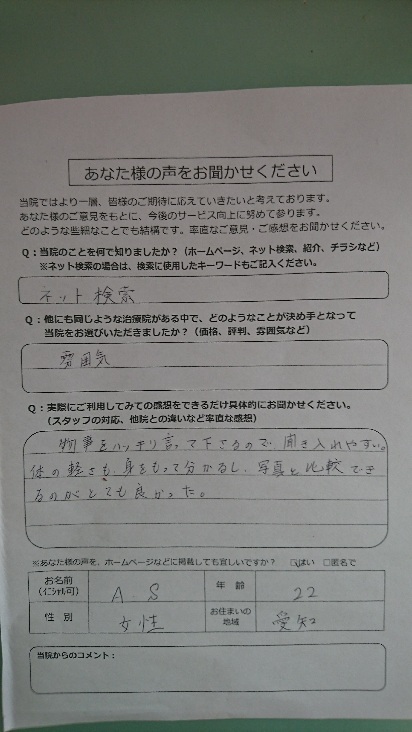 あなた様の声をお聞かせください
当院ではより一層、皆様のご期待に応えていきたいと考えております。
あなた様のご意見をもとに、今後のサービス向上に努めて参ります。
どのような些細なことでも結構です。率直なご意見・ご感想をお聞かせください。
Q：当院のことを何で知りましたか？（ホームページ、ネット検索、紹介、チラシなど）
※ネット検索の場合は、検索に使用したキーワードもご記入ください。
ネット検索
Q：他にも同じような治療院がある中で、どのようなことが決め手となって
当院をお選びいただきましたか？（価格、評判、雰囲気など）
雰囲気
Q：実際にご利用してみての感想をできるだけ具体的にお聞かせください。
（スタッフの対応、他院との違いなど率直な感想）
物事をハッキリ言って下さるので聞き入れやすい。
体の軽さも、身をもって分かるし、写真と比較でき
るのがとても良かった。
※あなた様の声を、ホームページなどに掲載しても宜しいですか？ □はい □匿名で
お名前 A S 年齢 22
（ｲﾆｼｬﾙ可）
性別 女性 お住まいの 愛知
地域
当院からのコメント：